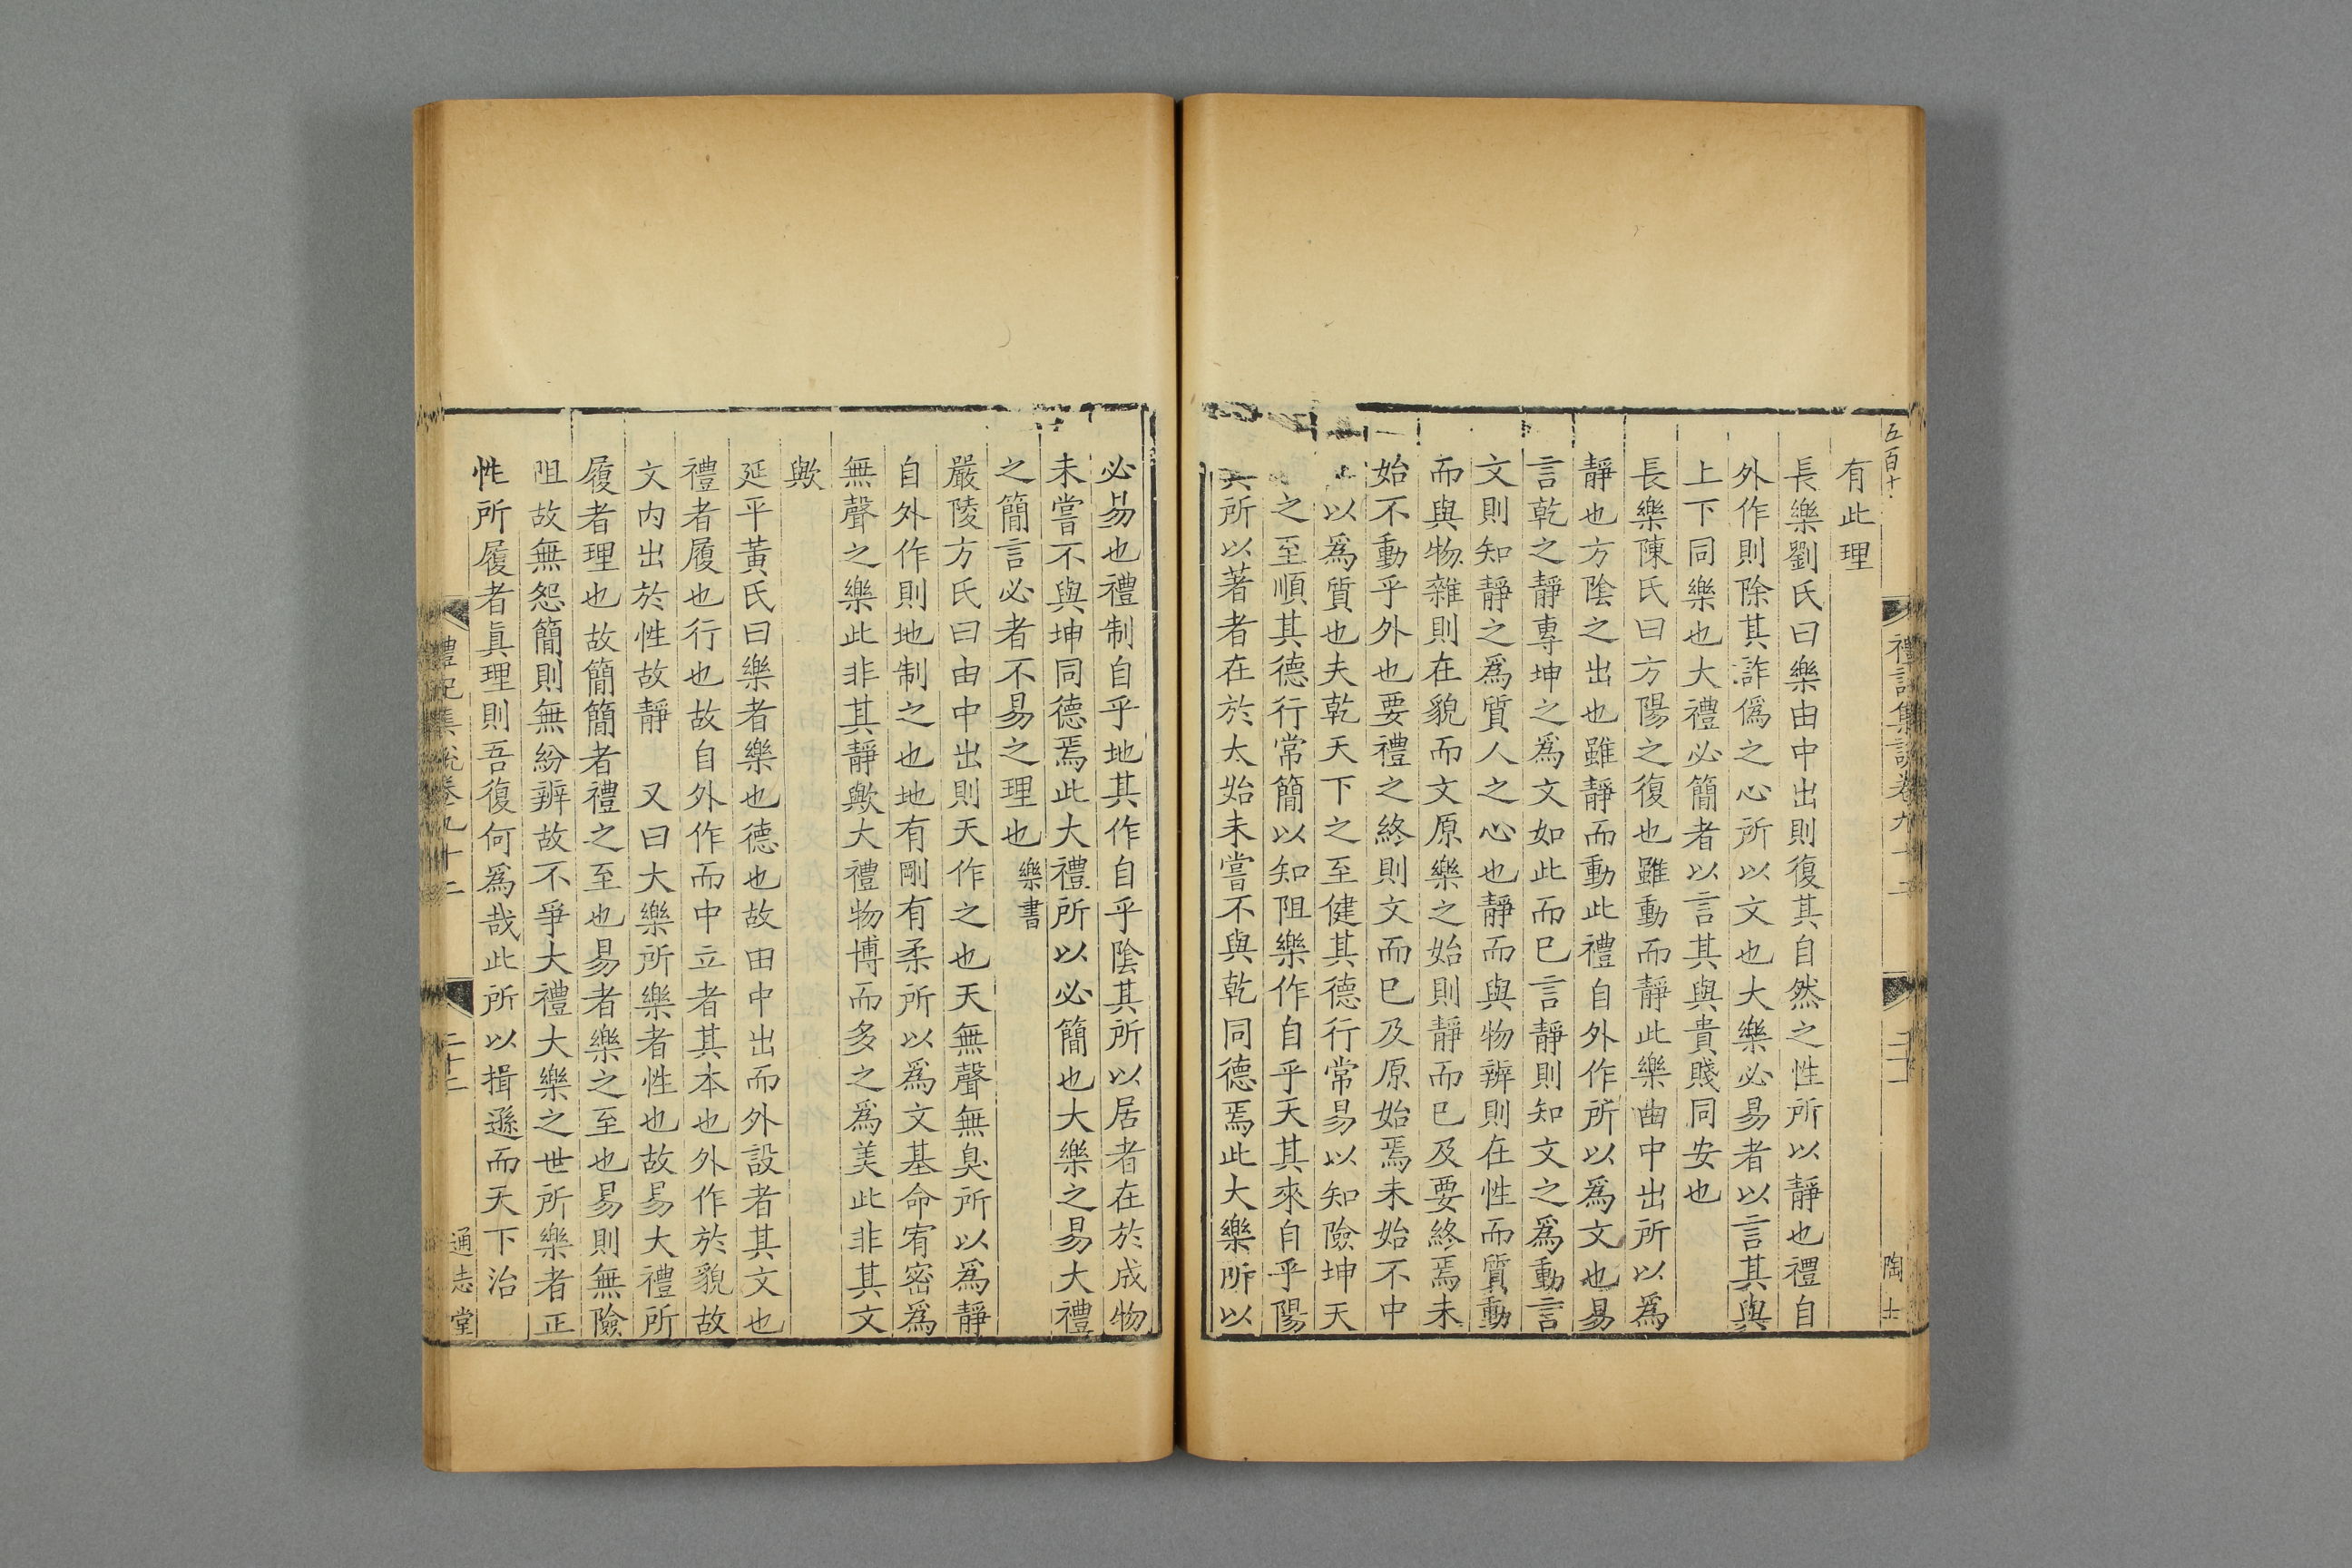 五百十
禮記集說卷九十二
二十一
陶士
有此理
長樂劉氏曰樂由中出則復其自然之性所以靜也禮自
外作則除其詐僞之心所以文也大樂必易者以言其與
上下同樂也大禮必簡者以言其與貴賤同安也
長樂陳氏曰方陽之復也雖動而靜此樂由中出所以爲
靜也方陰之出也雖靜而動此禮自外作所以爲文也易
言乾之靜專坤之爲文如此而已言靜則知文之爲動言
文則知靜之爲質人之心也靜而與物辨則在性而質動
而與物雜則在貌而文原樂之始則靜而已及要終焉未
始不動乎外也要禮之終則文而已及原始焉未始不中
以爲質也夫乾天下之至健其德行常易以知險坤天
之至順其德行常簡以知阻樂作自乎天其來自乎陽
其所以著者在於太始未嘗不與乾同德焉此大樂所以
必易也禮制自乎地其作自乎陰其所以居者在於成物
未嘗不與坤同德焉此大禮所以必簡也大樂之易大禮
之簡言必者不易之理也 樂書
嚴陵方氏曰由中出則天作之也天無聲無臭所以爲靜
自外作則地制之也地有剛有柔所以爲文基命宥密爲
無聲之樂此非其靜歟大禮物博而多之爲美此非其文
歟
延平黃氏曰樂者樂也德也故由中出而外設者其文也
禮者履也行也故自外作而中立者其本也外作於貌故
文内出於性故靜 又曰大樂所樂者性也故易大禮所
履者理也故簡簡者禮之至也易者樂之至也易則無險
阻故無怨簡則無紛辨故不爭大禮大樂之世所樂者正
性所履者眞理則吾復何爲哉此所以揖遜而天下治
禮記集說卷九十二
二十二
通志堂